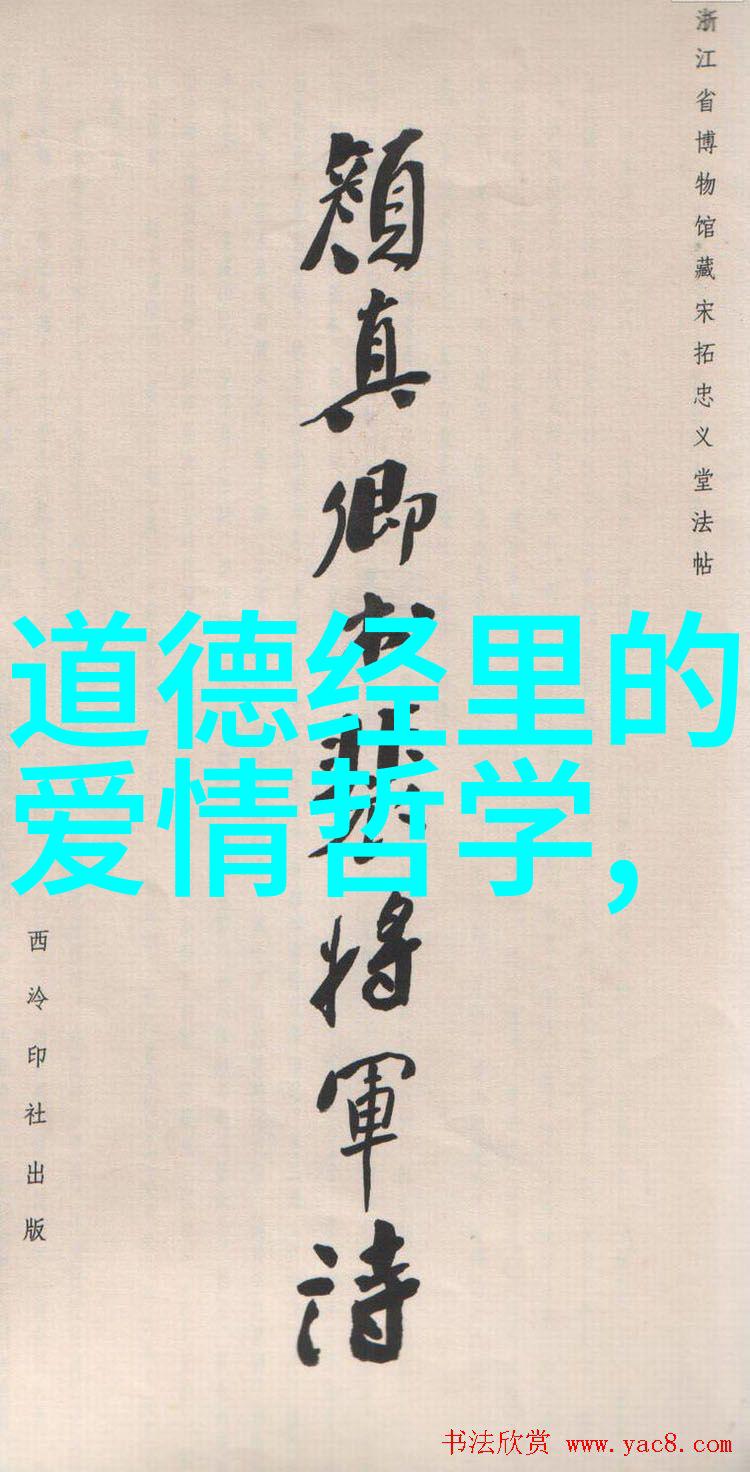 浙江省博物馆藏宋拓忠义堂法帖
顏真卿书裴将軍诗
道德经里的
爱情哲学,
西泠印社出版
书法欣赏 www.yac8.com